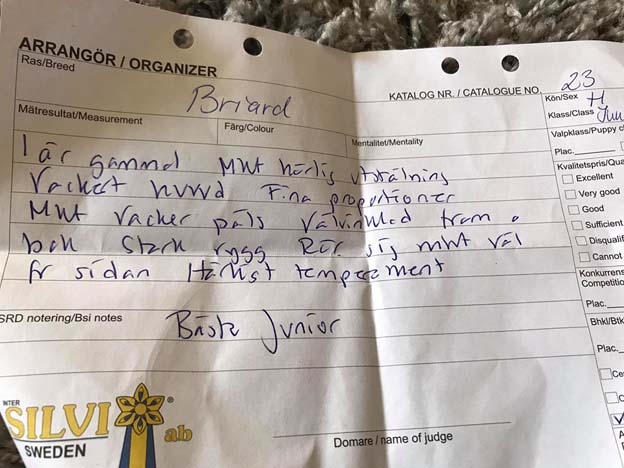 ARRANGÖR / ORGANIZER
Ras/Breed
Briard
KATALOG NR. / CATALOGUE NO. 23
Kön/Sex H
Klass/Class Jun
Mätresultat/Measurement
Färg/Colour
Mentalitet/Mentality
Valpklass/Puppy c
Plac.
1 år gammal Mkt härlig utstrålning
Vackert huvud Fina proportioner
Mkt vacker päls Välvinklad fram o
bak Stark rygg Rör sig mkt väl
fr sidan Härligt temperament
Kvalitetspris/Qua
Excellent
Very good
Good
Sufficient
Disqualif
Cannot
Konkurrens
Competition
Plac.
SRD notering/Bsi notes
Bästa Junior
Bhkl/Btk
Plac.
Ce
C
INTER
SILVI
ab
SWEDEN
Domare / name of judge